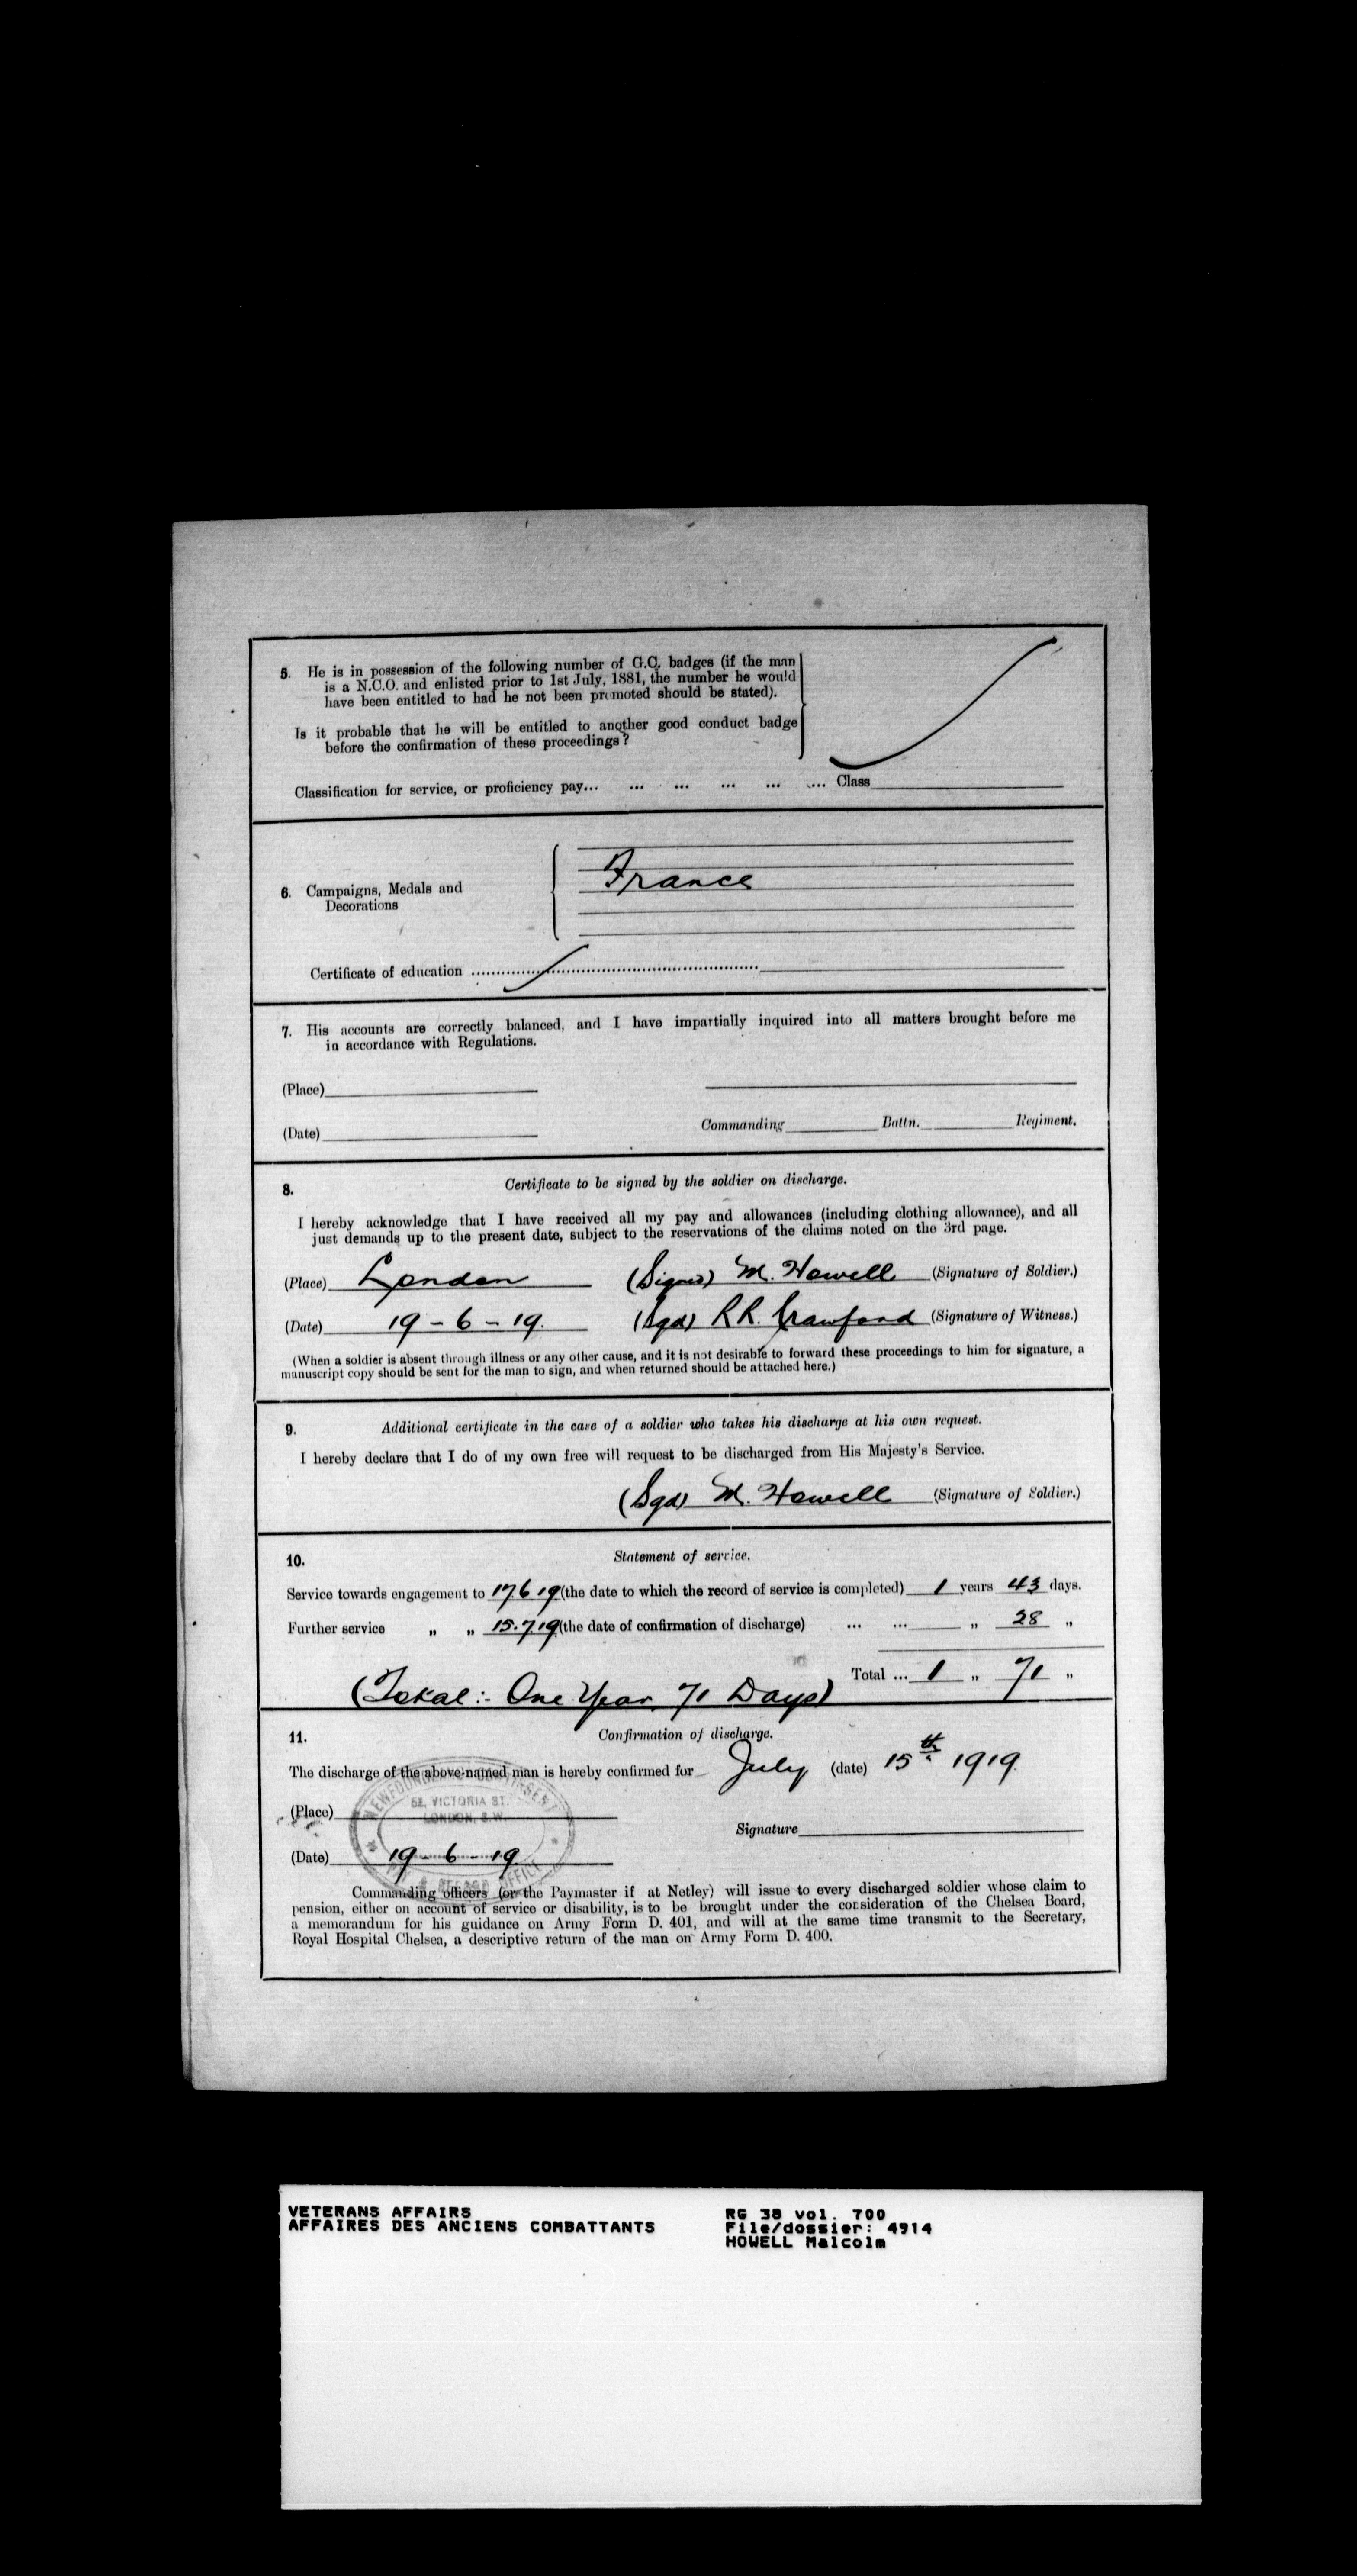 5. He is in possession of the following number of G.C. badges (if the man
is a N.C.O. and enlisted prior to 1st July, 1881, the number he would
have been entitled to had he not been promoted should be stated).
Is it probable that he will be entitled to another good conduct badge
before the confirmation of these proceedings?
Classification for service, or proficiency pay... ... ... ... ... ... Class
France
6. Campaigns, Medals and
Decorations
Certificate of education
7. His accounts are correctly balanced, and I have impartially inquired into all matters brought before me
in accordance with Regulations.
(Place)
(Date) Commanding Battn. Regiment.
8. Certificate to be signed by the soldier on discharge.
I hereby acknowledge that I have received all my pay and allowances (including clothing allowance), and all
just demands up to the present date, subject to the reservations of the claims noted on the 3rd page.
(Place) London (Signed) M. Howell (Signature of Soldier.)
(Date) 19-6-19. (Sgd) R.R. Crawford (Signature of Witness.)
(When a soldier is absent through illness or any other cause, and it is not desirable to forward these proceedings to him for signature, a
manuscript copy should be sent for the man to sign, and when returned should be attached here.)
9. Additional certificate in the case of a soldier who takes his discharge at his own request.
I hereby declare that I do of my own free will request to be discharged from His Majesty's Service.
(Sgd) M. Howell (Signature of Soldier.)
10. Statement of service.
Service towards engagement to 17.6.19 (the date to which the record of service is completed) 1 years 43 days.
Further service „ „ 15.7.19 (the date of confirmation of discharge) ... ... „ 28 „
Total ... 1 „ 71 „
(Total:- One Year, 71 Days)
11. Confirmation of discharge.
The discharge of the above-named man is hereby confirmed for July (date) 15th 1919.
52, VICTORIA ST.
LONDON, S.W.
(Place)
Signature
(Date) 19-6-19
OFFICE
Commanding officers (or the Paymaster if at Netley) will issue to every discharged soldier whose claim to
pension, either on account of service or disability, is to be brought under the consideration of the Chelsea Board,
a memorandum for his guidance on Army Form D. 401, and will at the same time transmit to the Secretary,
Royal Hospital Chelsea, a descriptive return of the man on Army Form D. 400.
VETERANS AFFAIRS RG 38 vol. 700
AFFAIRES DES ANCIENS COMBATTANTS File/dossier: 4914
HOWELL Malcolm